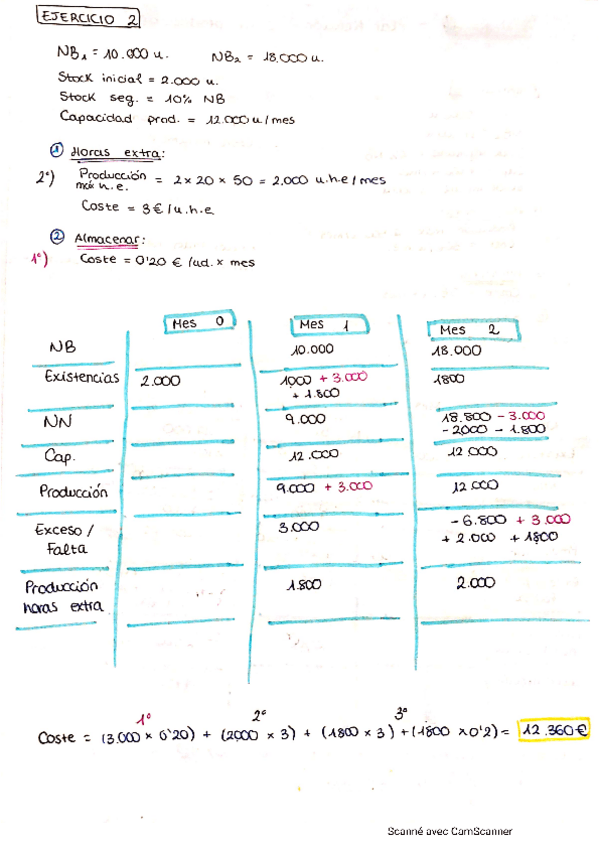 EJERCICIO 2
NB1 = 10.000 u. NB2 = 18.000 u.
Stock inicial = 2.000 u.
Stock seg. = 10% NB
Capacidad prod. = 12.000 u/mes
① Horas extra:
2º) Producción máx h.e. = 2 x 20 x 50 = 2.000 u.h.e/mes
Coste = 3€/u.h.e
② Almacenar:
1º) Coste = 0'20 €/ud. x mes
Mes 0 Mes 1 Mes 2
NB 10.000 18.000
Existencias 2.000 1000 + 3.000 1800
+ 1.800
NN 9.000 18.800 - 3.000
- 2000 - 1.800
Cap. 12.000 12.000
Producción 9.000 + 3.000 12.000
Exceso / 3.000 - 6.800 + 3.000
Falta + 2.000 + 1800
Producción 1.800 2.000
horas extra
1º 2º 3º
Coste = (3.000 x 0'20) + (2000 x 3) + (1800 x 3) + (1800 x 0'2) = 12.360€
Scanné avec CamScanner